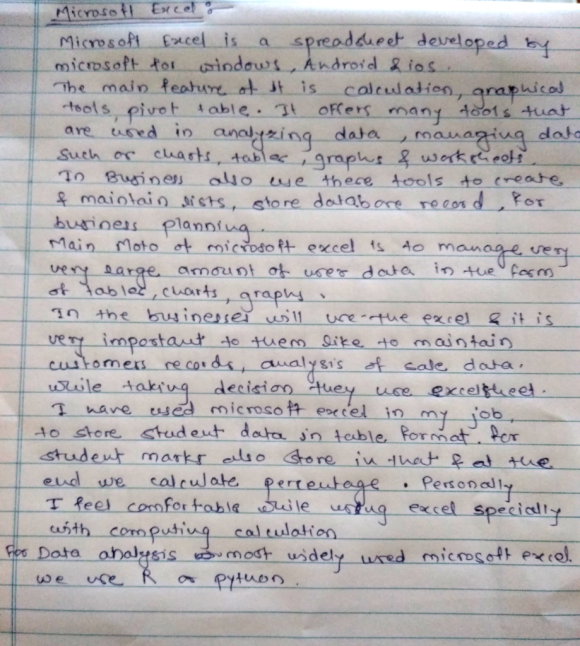 Microsoft Excel :-
Microsoft Excel is a spreadsheet developed by
microsoft for windows, Android & ios.
The main feature of It is calculation, graphical
tools, pivot table. It offers many tools that
are used in analyzing data, managing data
such or charts, tables, graphs & worksheets.
In Business also use these tools to create
& maintain lists, store database record, for
business planning.
Main Moto of microsoft excel is to manage very
very large amount of user data in the form
of tables, charts, graphs.
In the businesses will use the excel & it is
very important to them like to maintain
customers records, analysis of sale data.
while taking decision they use excelsheet.
I have used microsoft excel in my job,
to store student data in table format. for
student marks also store in that & at the
end we calculate percentage. Personally
I feel comfortable while using excel specially
with computing calculation
For Data analysis most widely used microsoft excel.
we use R or python.